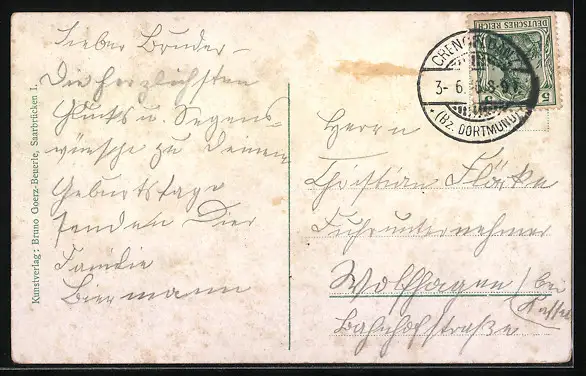 Lieber Bruder
Die herzlichsten
Glück u. Segens-
wünsche zu Deinem
Geburtstage
senden Dier
Familie
Biermann
Kunstverlag: Bruno Goerz-Beuerle, Saarbrücken I.
DEUTSCHES REICH
5
CRENGELDANZ
3-6. 8-9V.
(BZ. DORTMUND)
Herrn
Christian Flörke
Fuhrunternehmer
Wolfhagen / bei
Kassel
Bahnhofstraße